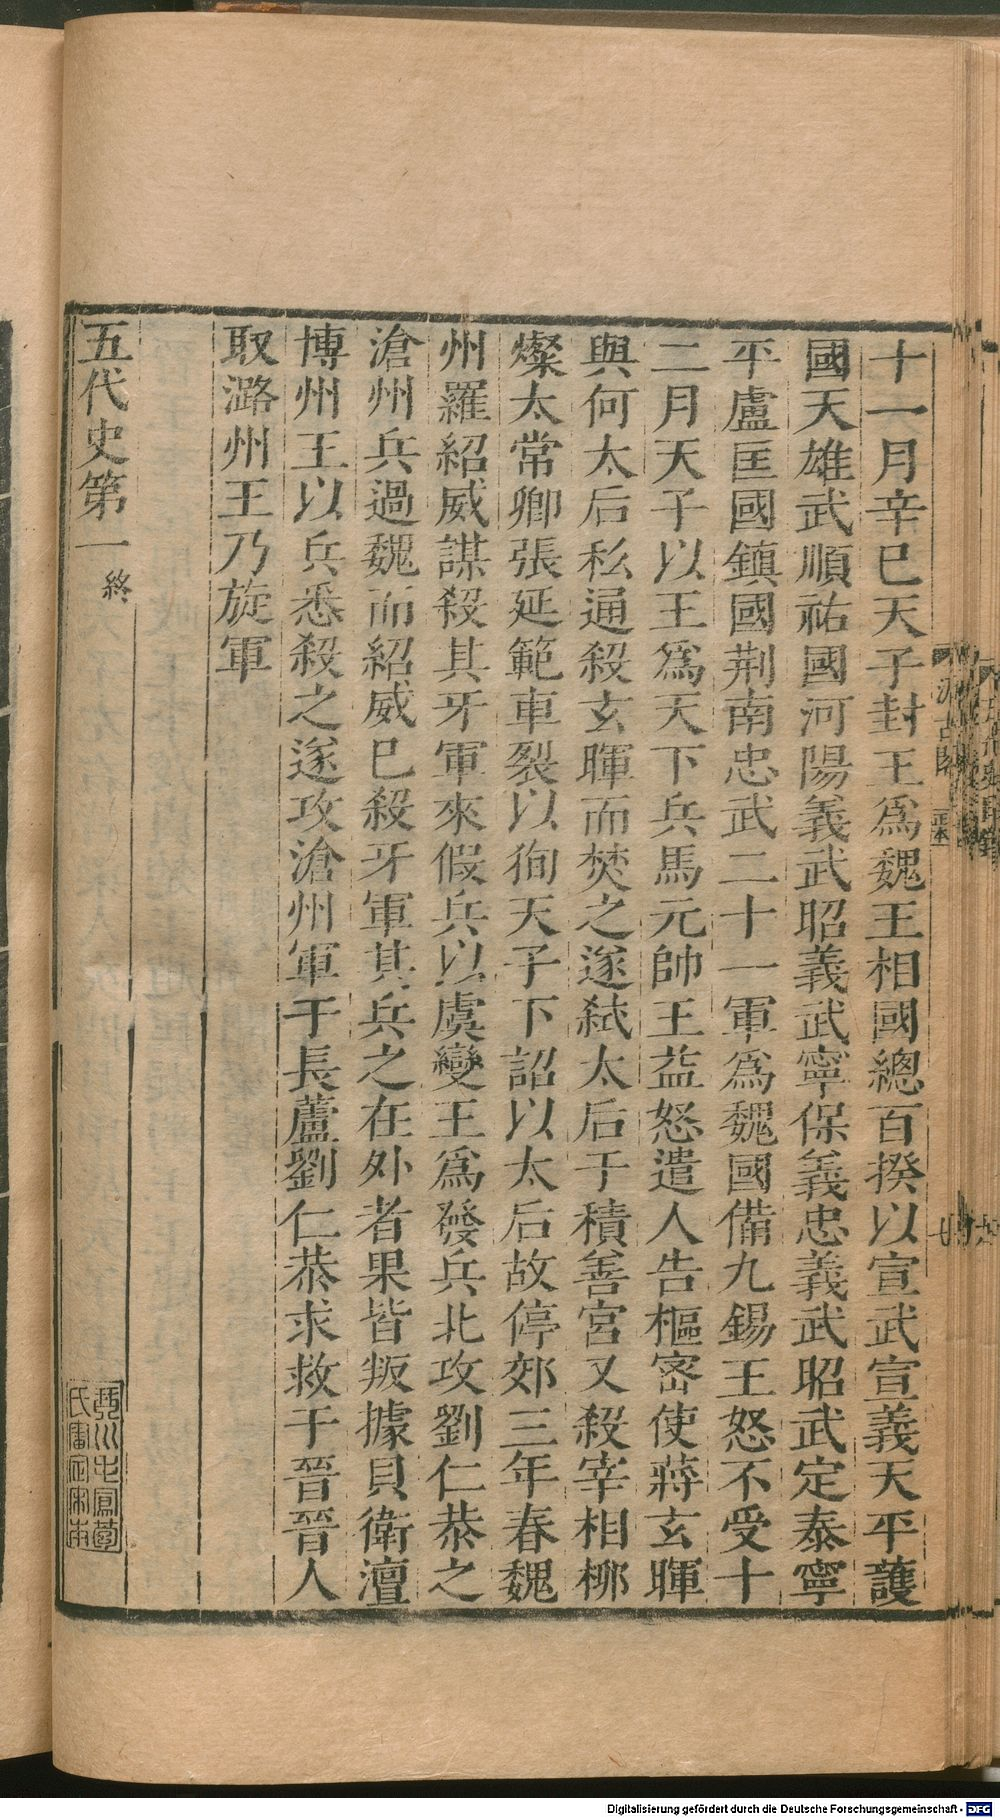 十一月辛巳天子封王爲魏王相國總百揆以宣武宣義天平護
國天雄武順祐國河陽義武昭義武寧保義忠義武昭武定泰寧
平盧匡國鎮國荆南忠武二十一軍爲魏國備九錫王怒不受十
二月天子以王爲天下兵馬元帥王益怒遣人告樞密使蔣玄暉
與何太后私通殺玄暉而焚之遂弑太后于積善宮又殺宰相柳
燦太常卿張延範車裂以徇天子下詔以太后故停郊三年春魏
州羅紹威謀殺其牙軍來假兵以虞變王爲發兵北攻劉仁恭之
滄州兵過魏而紹威已殺牙軍其兵之在外者果皆叛據貝衛澶
博州王以兵悉殺之遂攻滄州軍于長蘆劉仁恭求救于晉晉人
取潞州王乃旋軍
五代史第一終
琴川毛鳳苞
氏審定宋本
汲古閣
正本
Digitalisierung gefördert durch die Deutsche Forschungsgemeinschaft - DFG